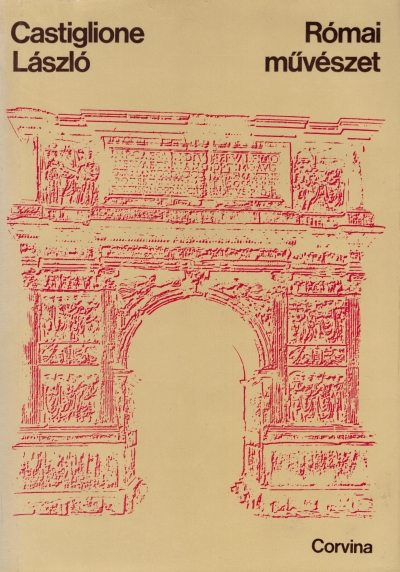 Castiglione
László
Római
művészet
Corvina